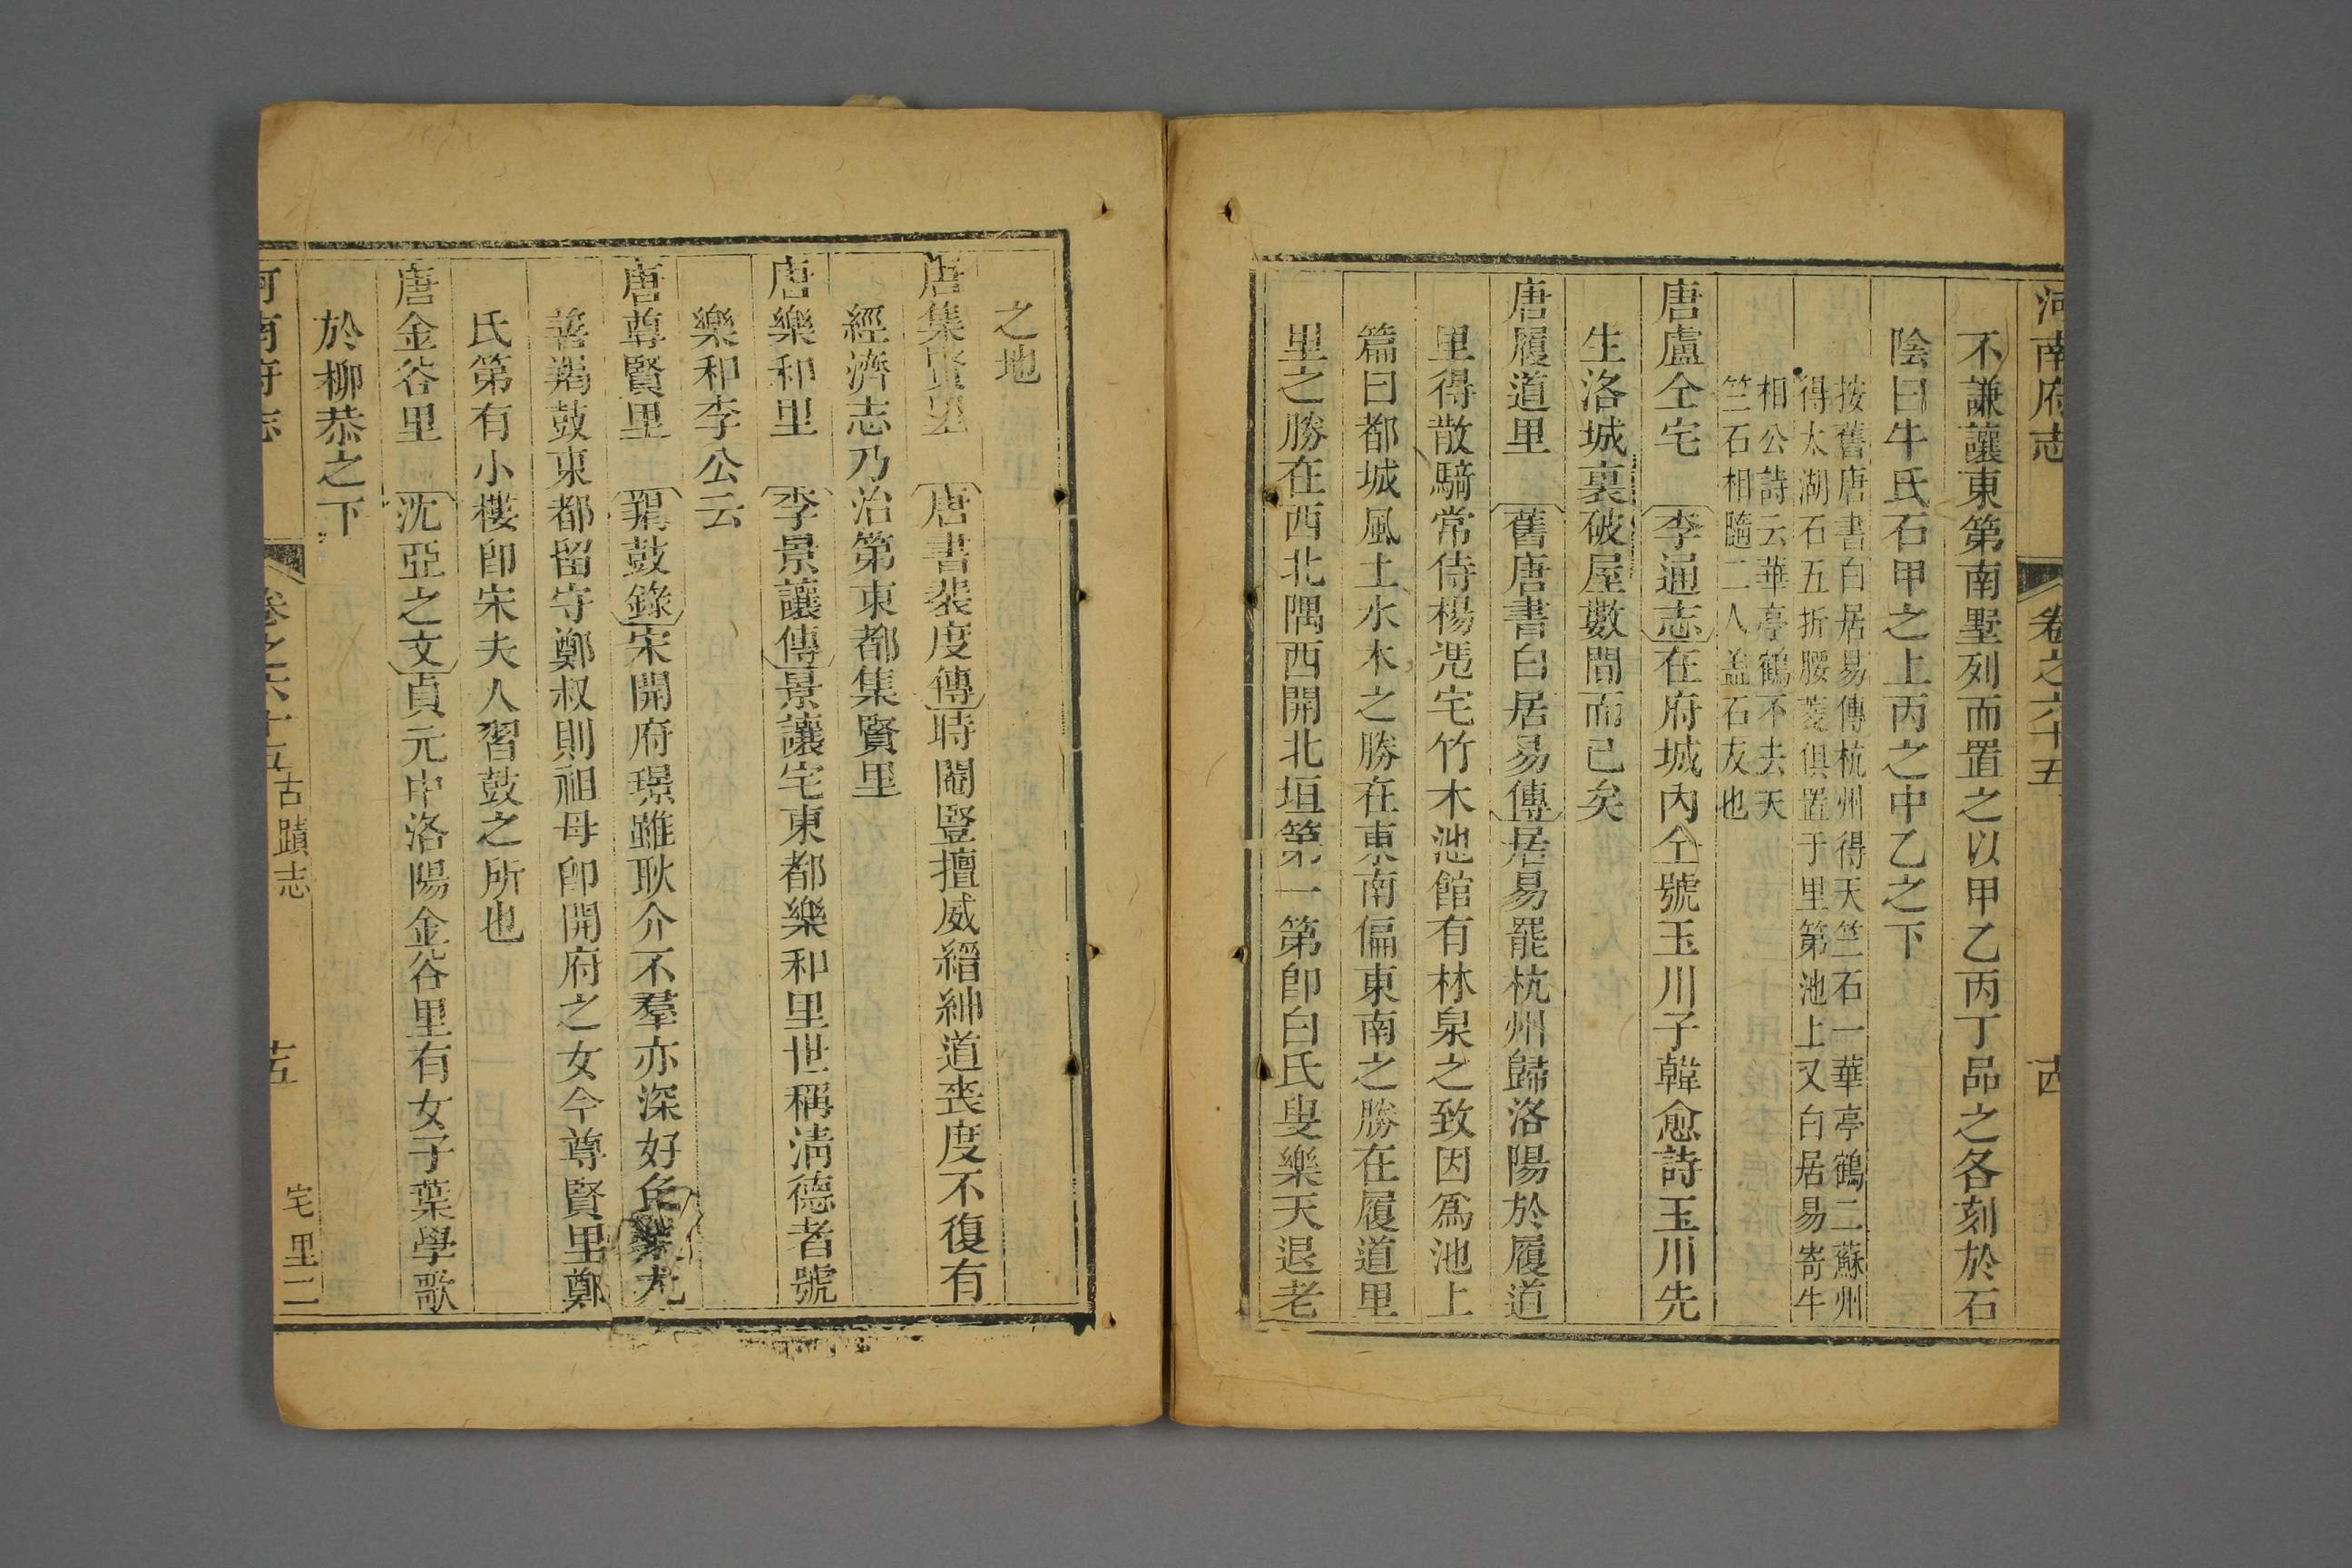 河南府志 卷之六十五
不謙讓東第南墅列而置之以甲乙丙丁品之各刻於石
陰曰牛氏石甲之上丙之中乙之下
按舊唐書白居易傳杭州得天竺石一華亭鶴二蘇州
得太湖石五折腰菱俱置于里第池上又白居易寄牛
相公詩云華亭鶴不去天
竺石相隨二人蓋石友也
唐盧仝宅 李通志在府城內仝號玉川子韓愈詩玉川先
生洛城裏破屋數間而已矣
唐履道里 舊唐書白居易傳居易罷杭州歸洛陽於履道
里得散騎常侍楊憑宅竹木池館有林泉之致因爲池上
篇曰都城風土水木之勝在東南偏東南之勝在履道里
里之勝在西北隅西開北垣第一第卽白氏叟樂天退老
之地
唐集賢里 唐書裴度傳時閹豎擅威縉紳道喪度不復有
經濟志乃治第東都集賢里
唐樂和里 李景讓傳景讓宅東都樂和里世稱淸德者號
樂和李公云
唐尊賢里 羯鼓錄宋開府璟雖耿介不羣亦深好聲樂尤
善羯鼓東都留守鄭叔則祖母卽開府之女今尊賢里鄭
氏第有小樓卽宋夫人習鼓之所也
唐金谷里 沈亞之文貞元中洛陽金谷里有女子葉學歌
於柳恭之下
河南府志 卷之六十五 古蹟志 宅里二